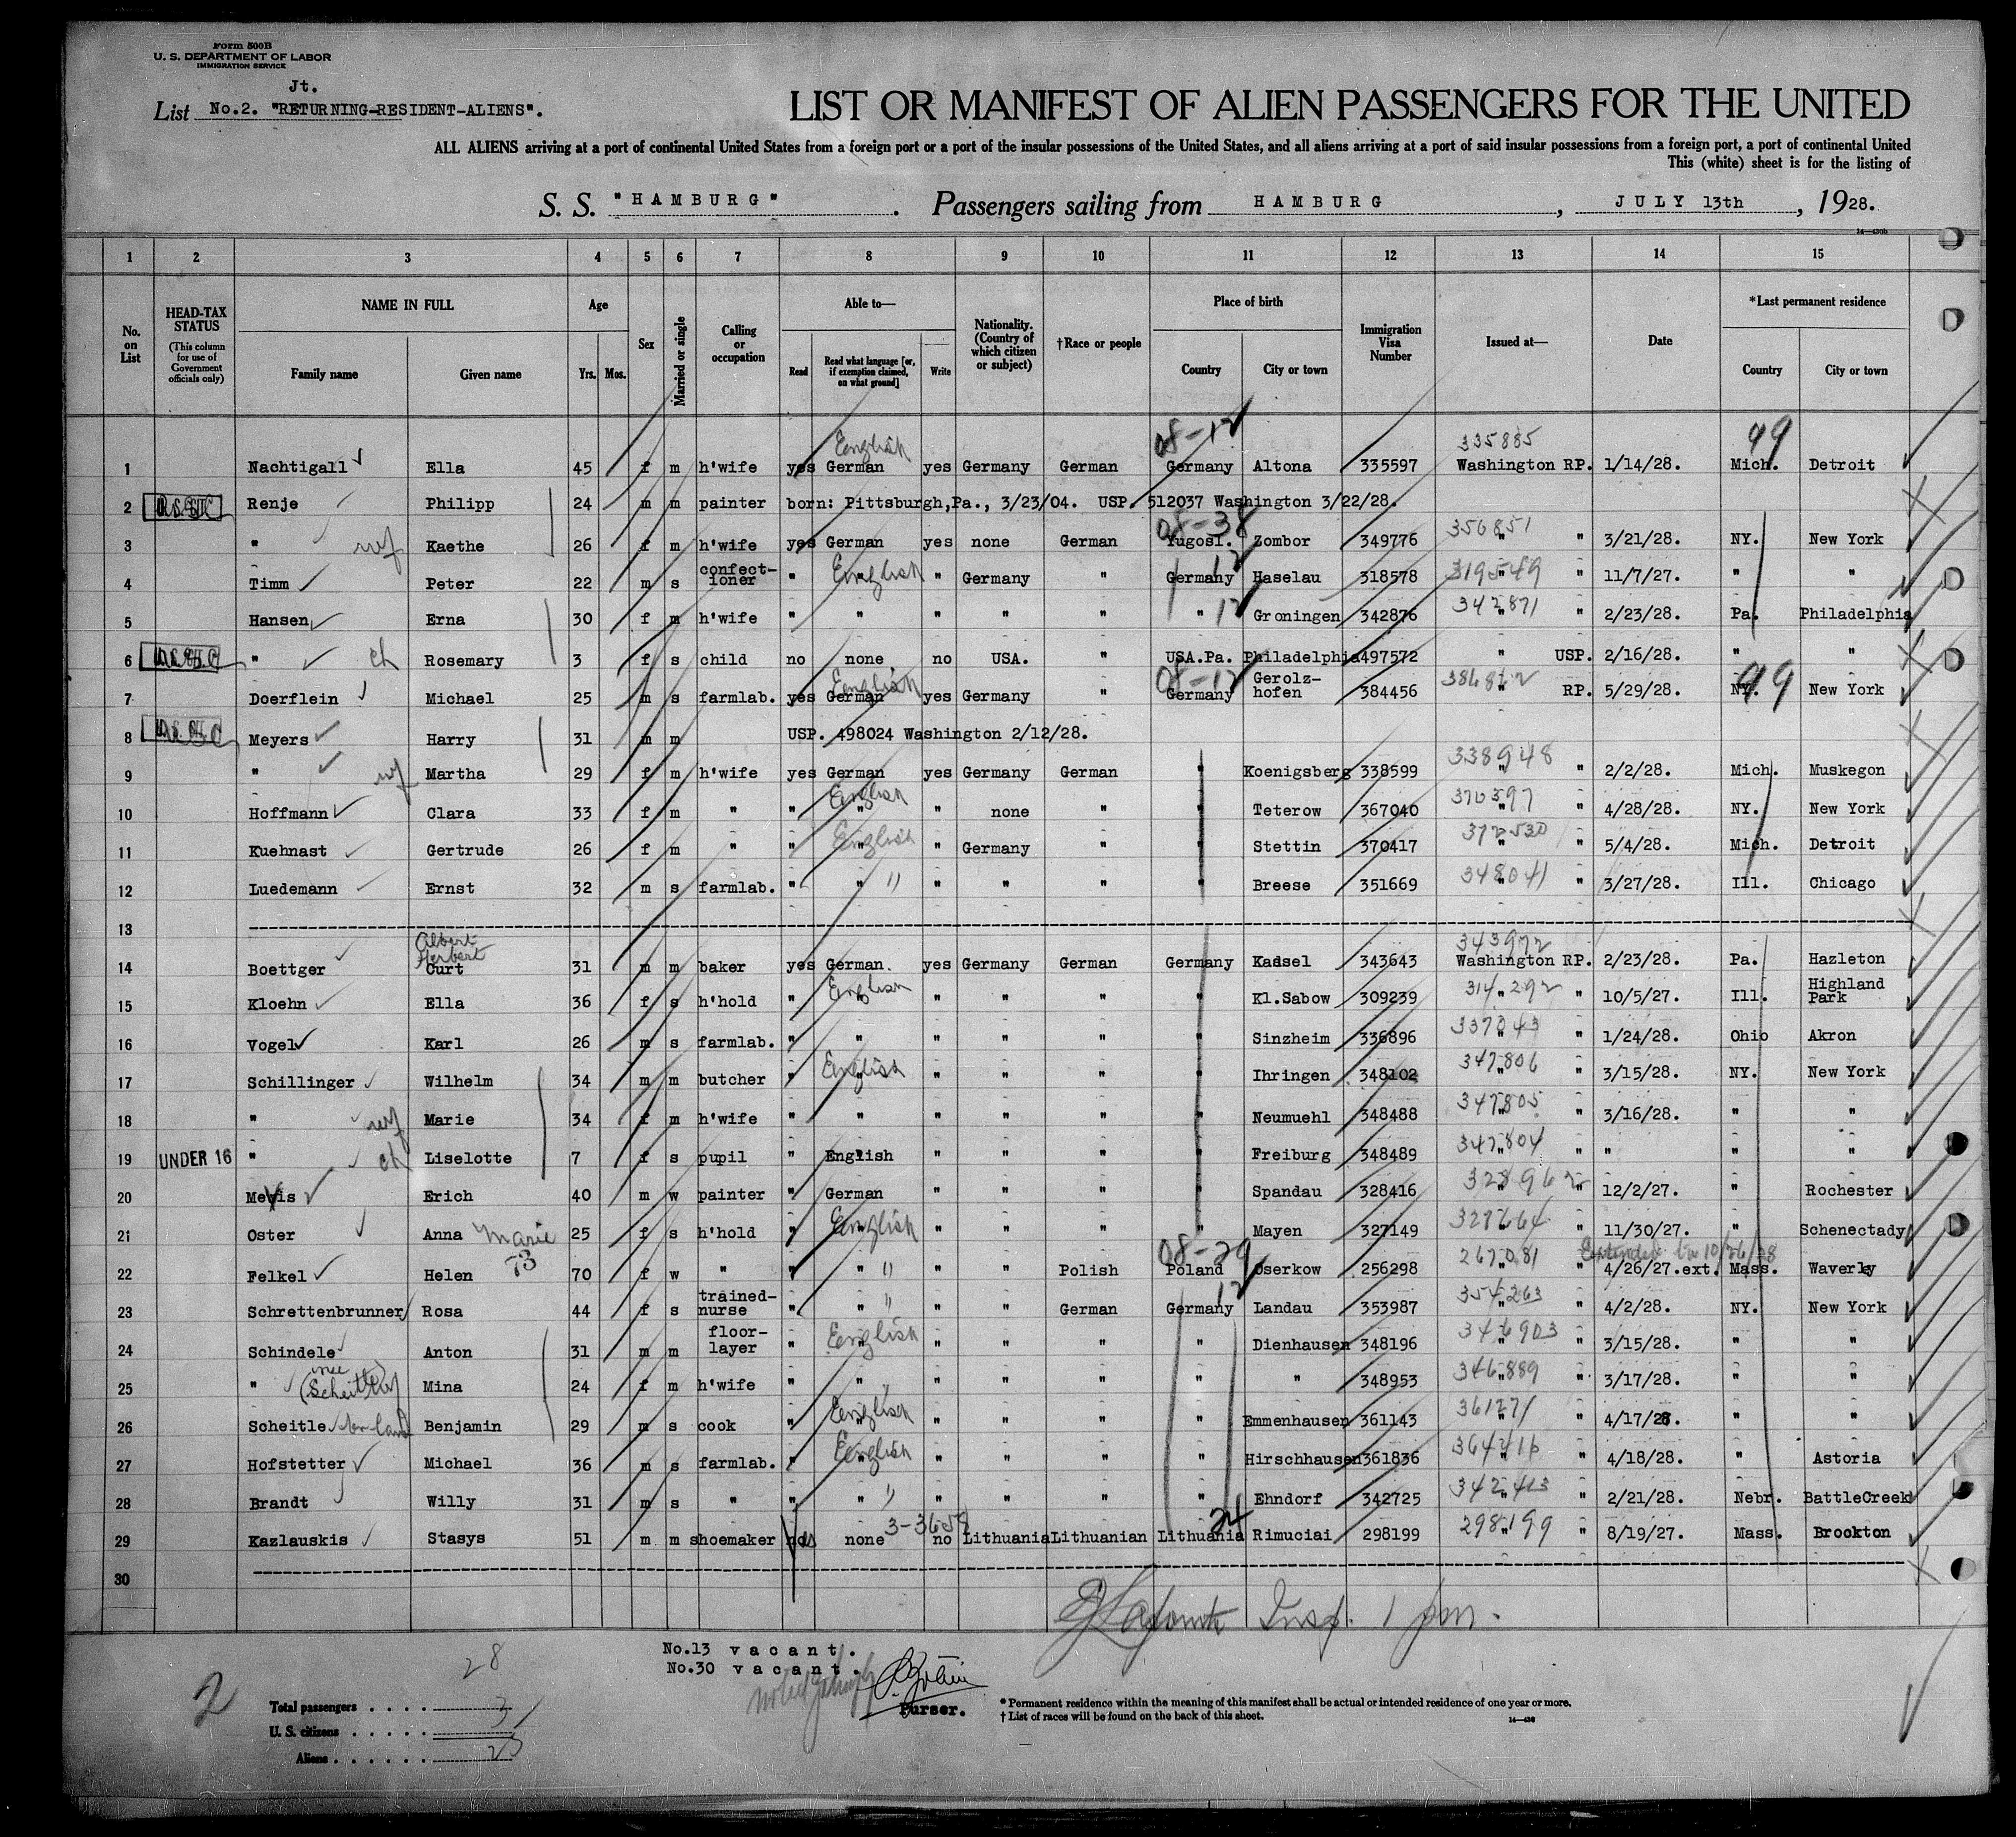 Form 500B
U. S. DEPARTMENT OF LABOR
IMMIGRATION SERVICE
Jt.
List No.2. "RETURNING-RESIDENT-ALIENS".
LIST OR MANIFEST OF ALIEN PASSENGERS FOR THE UNITED
ALL ALIENS arriving at a port of continental United States from a foreign port or a port of the insular possessions of the United States, and all aliens arriving at a port of said insular possessions from a foreign port, a port of continental United
This (white) sheet is for the listing of
S. S. "HAMBURG". Passengers sailing from HAMBURG, JULY 13th, 1928.
1 2 3 4 5 6 7 8 9 10 11 12 13 14 15
No. on List
HEAD-TAX STATUS (This column for use of Government officials only)
NAME IN FULL Family name Given name
Age Yrs. Mos.
Sex
Married or single
Calling or occupation
Able to— Read Read what language [or, if exemption claimed, on what ground] Write
Nationality. (Country of which citizen or subject)
†Race or people
Place of birth Country City or town
Immigration Visa Number
Issued at—
Date
*Last permanent residence Country City or town
English 08-12 335885 99
1 Nachtigall Ella 45 f m h'wife yes German yes Germany German Germany Altona 335597 Washington RP. 1/14/28. Mich. Detroit
2 Renje Philipp 24 m m painter born: Pittsburgh,Pa., 3/23/04. USP. 512037 Washington 3/22/28.
08-38 356851
3 " wf Kaethe 26 f m h'wife yes German yes none German Yugosl. Zombor 349776 " " 3/21/28. NY. New York
English 12 319549
4 Timm Peter 22 m s confect-ioner " " " Germany " Germany Haselau 318578 " " 11/7/27. " "
12 342871
5 Hansen Erna 30 f m h'wife " " " " " " Groningen 342876 " " 2/23/28. Pa. Philadelphia
6 " ch Rosemary 3 f s child no none no USA. " USA.Pa. Philadelphia 497572 " USP. 2/16/28. " "
English 08-12 99
7 Doerflein Michael 25 m s farmlab. yes German yes Germany " Germany Gerolz-hofen 384456 " RP. 5/29/28. NY. New York
8 Meyers Harry 31 m m USP. 498024 Washington 2/12/28.
338948
9 " wf Martha 29 f m h'wife yes German yes Germany German " Koenigsberg 338599 " " 2/2/28. Mich. Muskegon
English 370597
10 Hoffmann Clara 33 f m " " " " none " " Teterow 367040 " " 4/28/28. NY. New York
English 372530
11 Kuehnast Gertrude 26 f m " " " " Germany " " Stettin 370417 " " 5/4/28. Mich. Detroit
348041
12 Luedemann Ernst 32 m s farmlab. " " " " " " Breese 351669 " " 3/27/28. Ill. Chicago
13
Albert Herbert 343972
14 Boettger Curt 31 m m baker yes German. yes Germany German Germany Kassel 343643 Washington RP. 2/23/28. Pa. Hazleton
English 314292
15 Kloehn Ella 36 f s h'hold " " " " " " Kl.Sabow 309239 " " 10/5/27. Ill. Highland Park
337043
16 Vogel Karl 26 m s farmlab. " " " " " " Sinzheim 336896 " " 1/24/28. Ohio Akron
English 347806
17 Schillinger Wilhelm 34 m m butcher " " " " " " Ihringen 348102 " " 3/15/28. NY. New York
347805
18 " wf Marie 34 f m h'wife " " " " " " Neumuehl 348488 " " 3/16/28. " "
347804
19 UNDER 16 " ch Liselotte 7 f s pupil " English " " " " Freiburg 348489 " " " " "
328962
20 Megis Erich 40 m w painter " German " " " " Spandau 328416 " " 12/2/27. " Rochester
English 327664
21 Oster Anna Marie 25 f s h'hold " " " " " " Mayen 327149 " " 11/30/27. " Schenectady
73 08-29 267081 Extended to 10/26/28
22 Felkel Helen 70 f w " " " " " Polish Poland Oserkow 256298 " " 4/26/27.ext. Mass. Waverley
12 354263
23 Schrettenbrunner Rosa 44 f s trained-nurse " " " " German Germany Landau 353987 " " 4/2/28. NY. New York
English 346903
24 Schindele Anton 31 m m floor-layer " " " " " " Dienhausen 348196 " " 3/15/28. " "
nee 346889
25 " (Scheitle) wf Mina 24 f m h'wife " " " " " " " 348953 " " 3/17/28. " "
English 361271
26 Scheitle Benjamin 29 m s cook " " " " " " Emmenhausen 361143 " " 4/17/28. " "
English 364416
27 Hofstetter Michael 36 m s farmlab. " " " " " " Hirschhausen 361836 " " 4/18/28. " Astoria
342413
28 Brandt Willy 31 m s " " " " " " " Ehndorf 342725 " " 2/21/28. Nebr. BattleCreek
24 298199
29 Kazlauskis Stasys 51 m m shoemaker none no Lithuania Lithuanian Lithuania Rimuciai 298199 " " 8/19/27. Mass. Brockton
30
Insp. 1 pm.
No.13 vacant.
No.30 vacant.
Purser.
2
28
Total passengers . . . .
U. S. citizens . . . . . 3
Aliens . . . . . . 25
* Permanent residence within the meaning of this manifest shall be actual or intended residence of one year or more.
† List of races will be found on the back of this sheet.